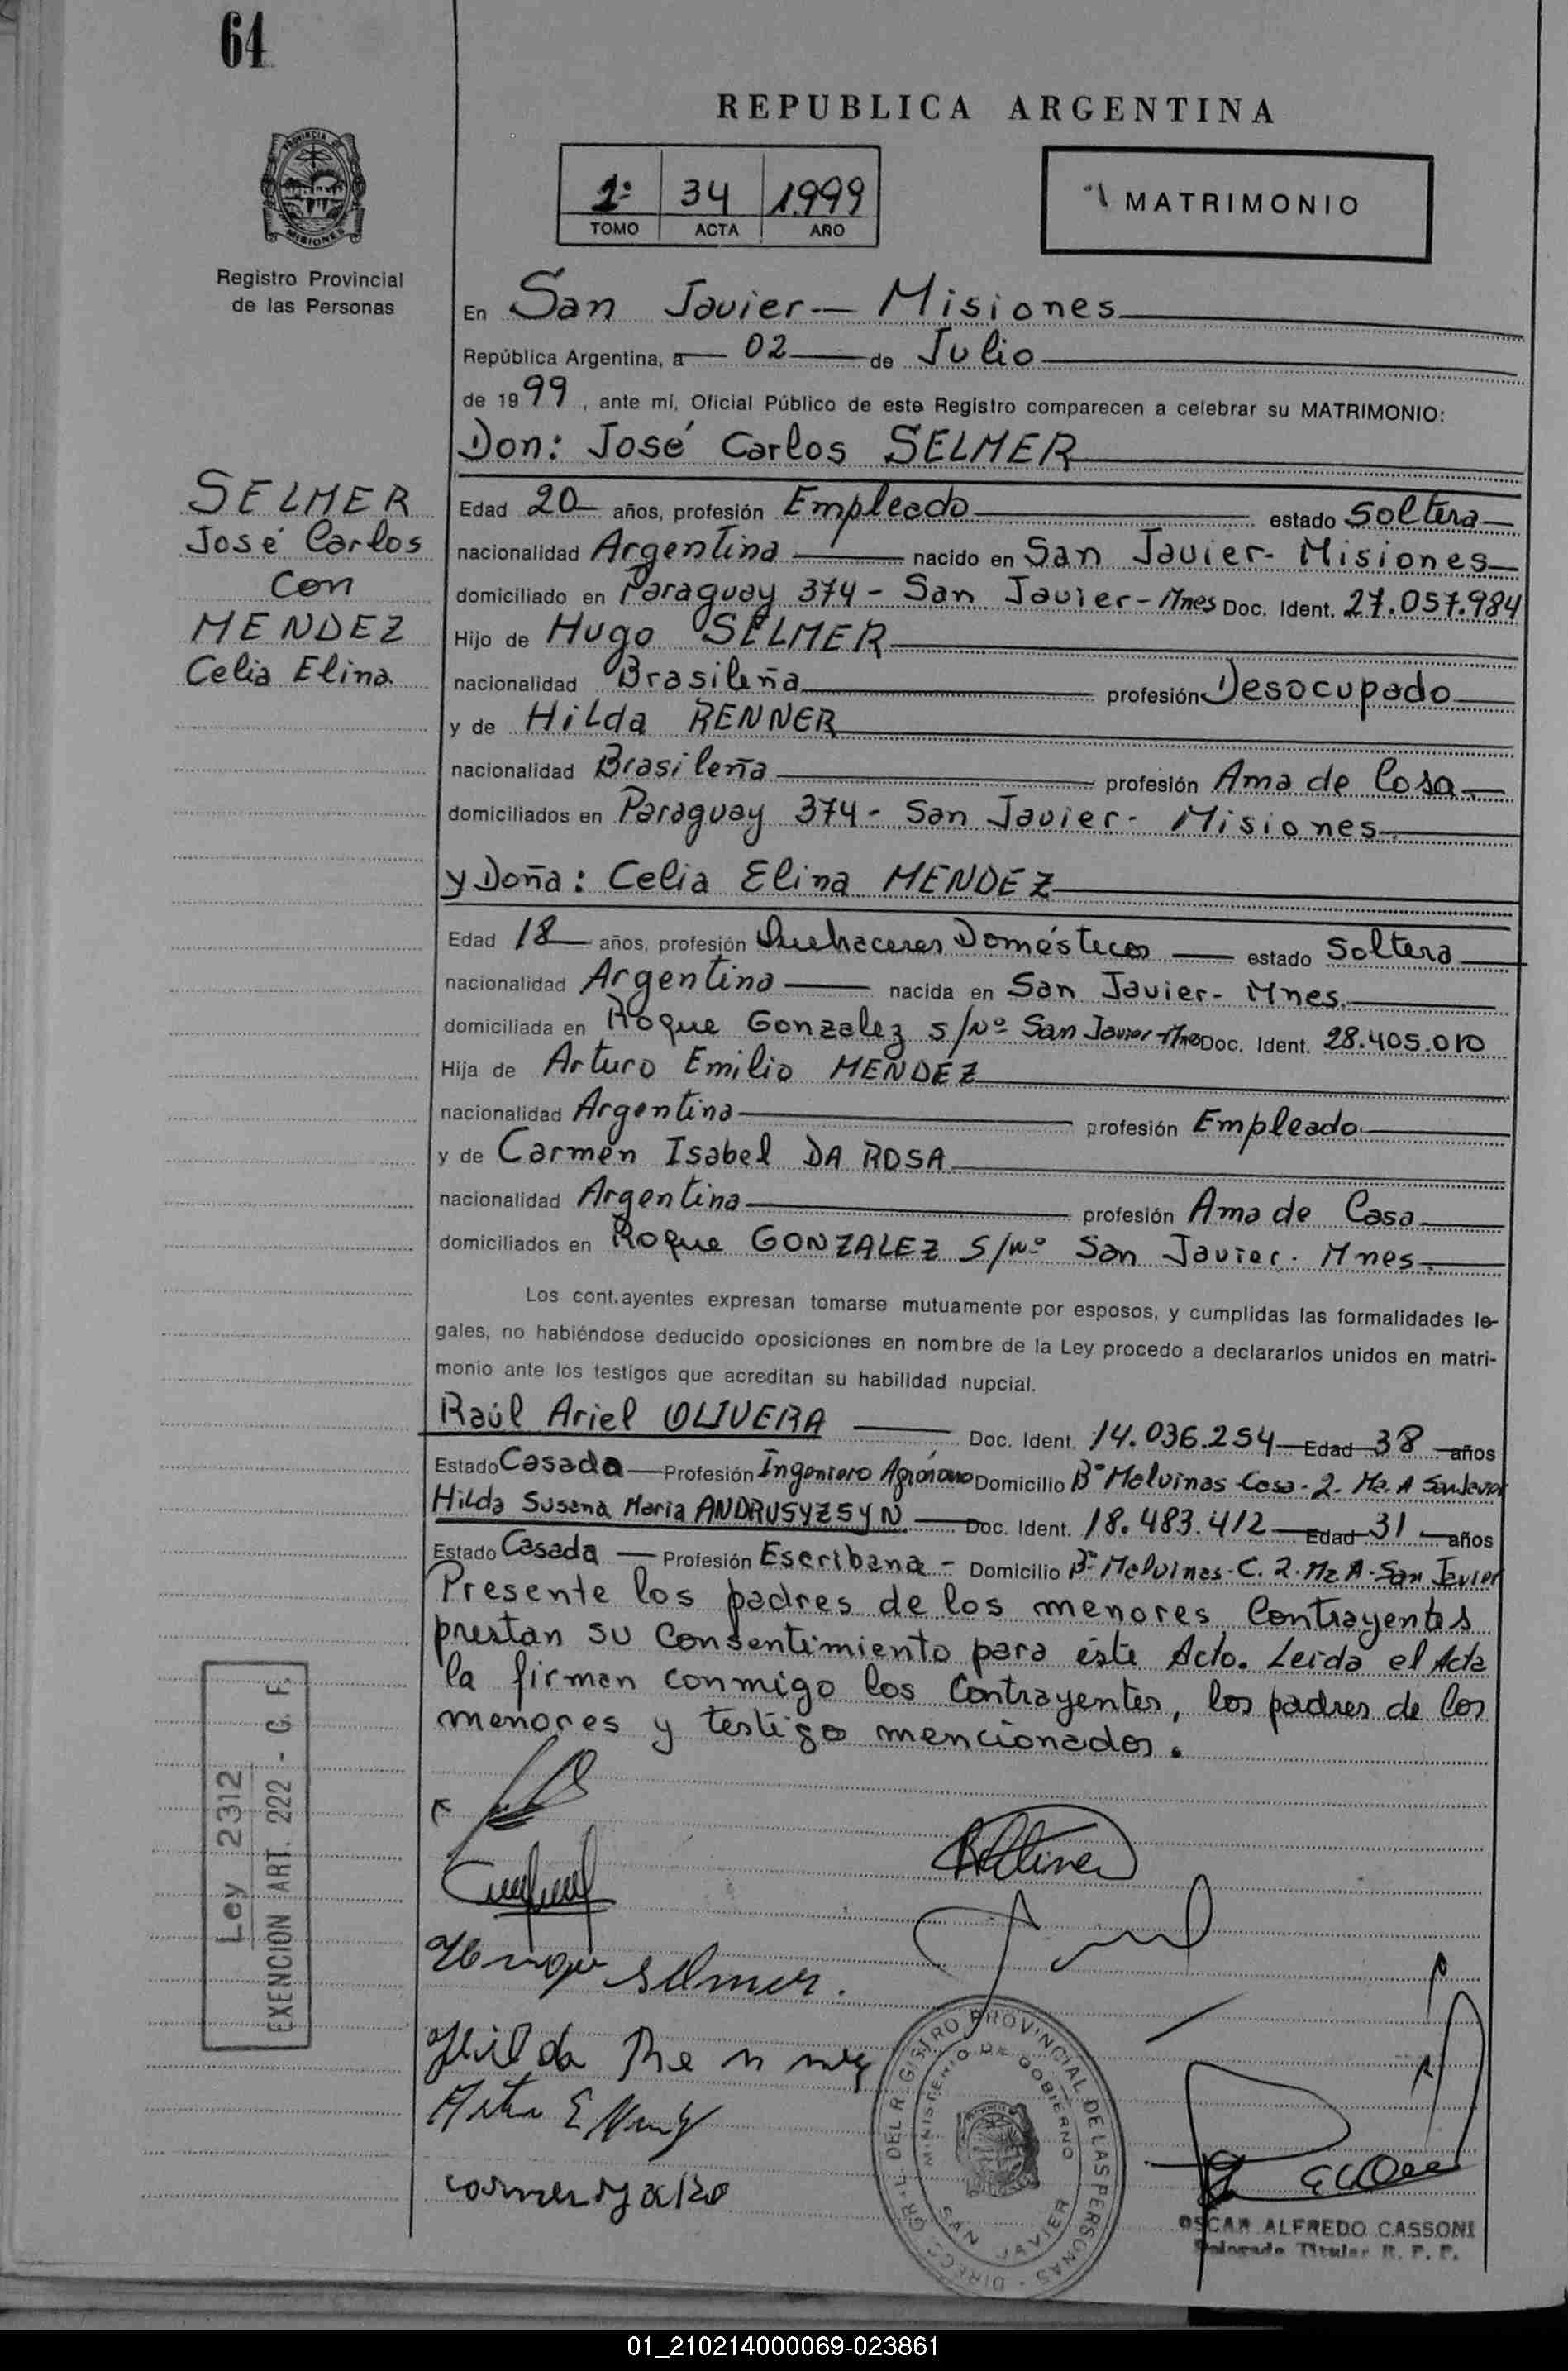 64
REPUBLICA ARGENTINA
PROVINCIA DE
MISIONES
1º 34 1.999
TOMO ACTA AÑO
MATRIMONIO
Registro Provincial
de las Personas
En San Javier - Misiones
República Argentina, a 02 de Julio
de 1999, ante mí, Oficial Público de este Registro comparecen a celebrar su MATRIMONIO:
Don: José Carlos SELMER
SELMER
José Carlos
Con
MENDEZ
Celia Elina
Edad 20 años, profesión Empleado estado Soltera
nacionalidad Argentina nacido en San Javier - Misiones
domiciliado en Paraguay 374 - San Javier - Mnes Doc. Ident. 27.057.984
Hijo de Hugo SELMER
nacionalidad Brasileña profesión Desocupado
y de Hilda RENNER
nacionalidad Brasileña profesión Ama de Casa
domiciliados en Paraguay 374 - San Javier - Misiones
y Doña: Celia Elina MENDEZ
Edad 18 años, profesión Quehaceres Domésticos estado Soltera
nacionalidad Argentina nacida en San Javier - Mnes.
domiciliada en Roque Gonzalez s/Nº San Javier - Mnes Doc. Ident. 28.405.010
Hija de Arturo Emilio MENDEZ
nacionalidad Argentina profesión Empleado
y de Carmen Isabel DA ROSA
nacionalidad Argentina profesión Ama de Casa
domiciliados en Roque GONZALEZ S/Nº San Javier. Mnes.
Los cont.ayentes expresan tomarse mutuamente por esposos, y cumplidas las formalidades le-
gales, no habiéndose deducido oposiciones en nombre de la Ley procedo a declararlos unidos en matri-
monio ante los testigos que acreditan su habilidad nupcial.
Raúl Ariel OLIVERA Doc. Ident. 14.036.254 Edad 38 años
Estado Casada Profesión Ingeniero Agrónomo Domicilio Bº Malvinas Casa - 2. Mz. A San Javier
Hilda Susana Maria ANDRUSYZSYN Doc. Ident. 18.483.412 Edad 31 años
Estado Casada Profesión Escribana - Domicilio Bº Malvinas - C. 2. Mz A - San Javier
Presente los padres de los menores Contrayentes
prestan su Consentimiento para éste Acto. Leida el Acta
la firman conmigo los Contrayentes, los padres de los
menores y testigo mencionados.
Ley 2312
EXENCION ART. 222 - G. F.
Selmer.
Hilda Renner
DIRECC. GRAL. DEL REGISTRO PROVINCIAL DE LAS PERSONAS
MINISTERIO DE GOBIERNO
SAN JAVIER
OSCAR ALFREDO CASSONI
Delegado Titular R. P. P.
01_210214000069-023861